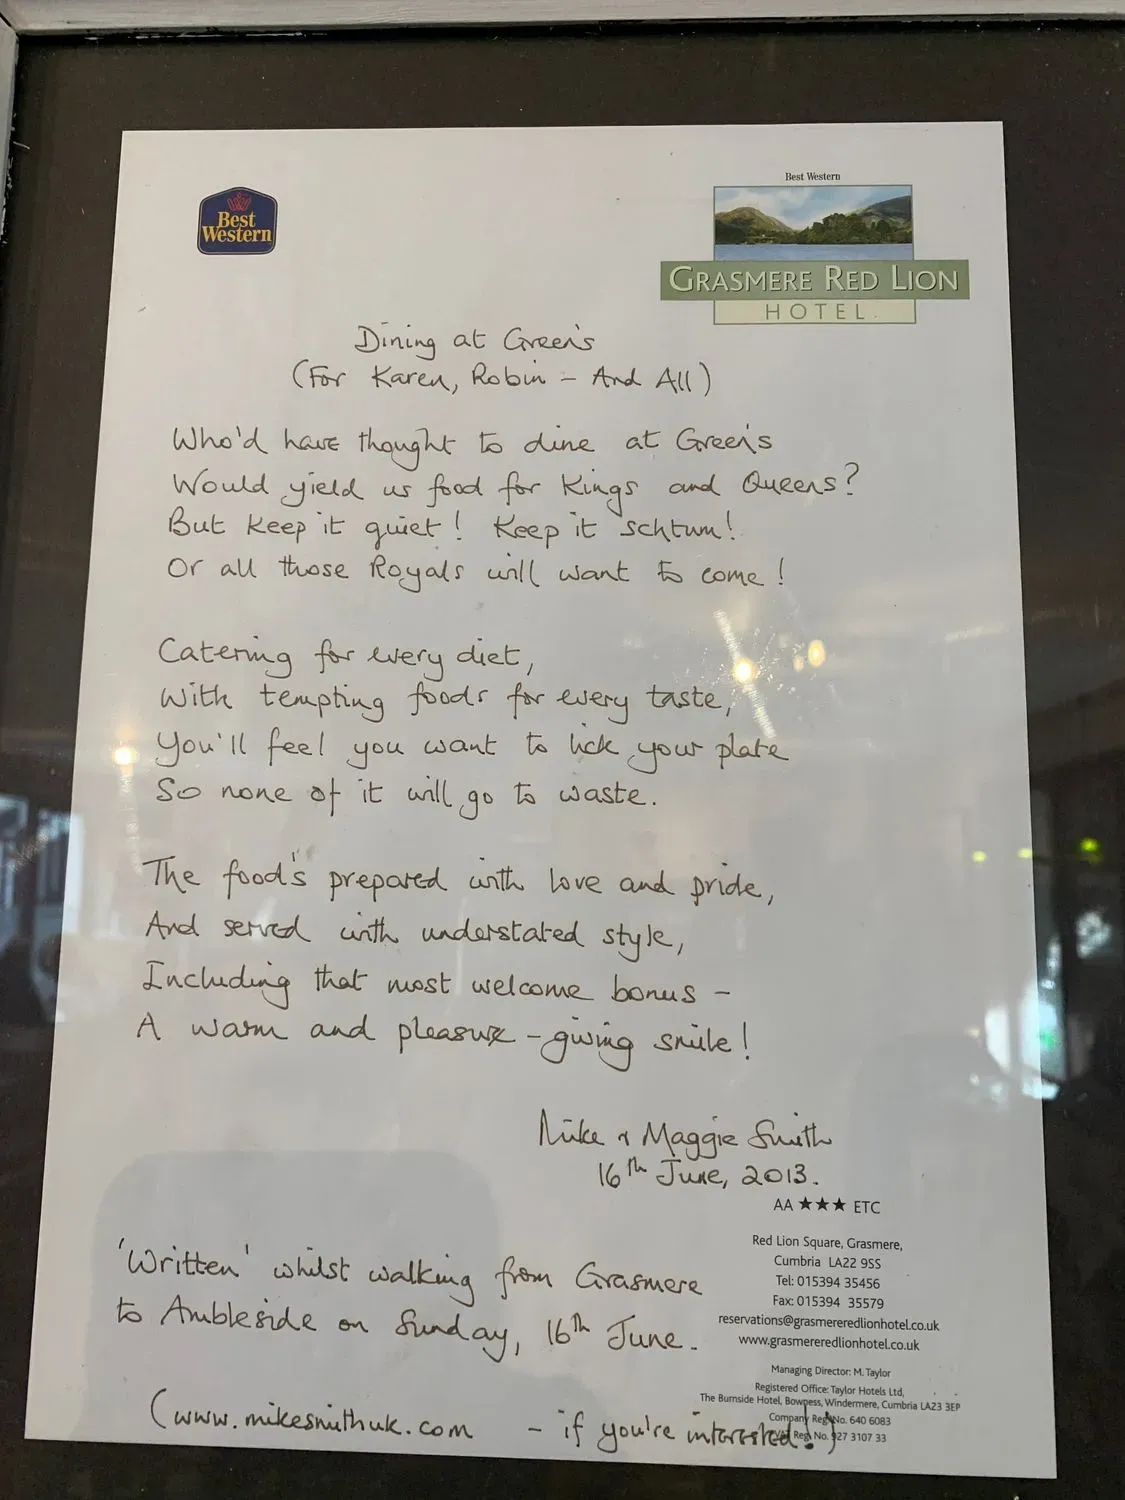 Best Western
Best
Western
GRASMERE RED LION
HOTEL
Dining at Green's
(For Karen, Robin – And All)
Who'd have thought to dine at Green's
Would yield us food for Kings and Queens?
But keep it quiet! Keep it schtum!
Or all those Royals will want to come!
Catering for every diet,
With tempting foods for every taste,
You'll feel you want to lick your plate
So none of it will go to waste.
The food's prepared with love and pride,
And served with understated style,
Including that most welcome bonus –
A warm and pleasure-giving smile!
Mike & Maggie Smith
16th June, 2013.
AA ★★★ ETC
Red Lion Square, Grasmere,
Cumbria LA22 9SS
Tel: 015394 35456
Fax: 015394 35579
reservations@grasmereredlionhotel.co.uk
www.grasmereredlionhotel.co.uk
'Written' whilst walking from Grasmere
to Ambleside on Sunday, 16th June.
Managing Director: M. Taylor
Registered Office: Taylor Hotels Ltd,
The Burnside Hotel, Bowness, Windermere, Cumbria LA23 3EP
Company Reg No. 640 6083
Reg. No. 927 3107 33
(www.mikesmithuk.com – if you're interested!)